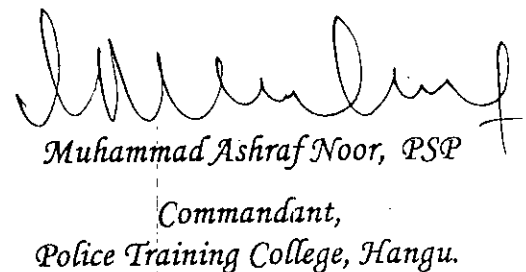 Muhammad Ashraf Noor, PSP
Commandant,
Police Training College, Hangu.